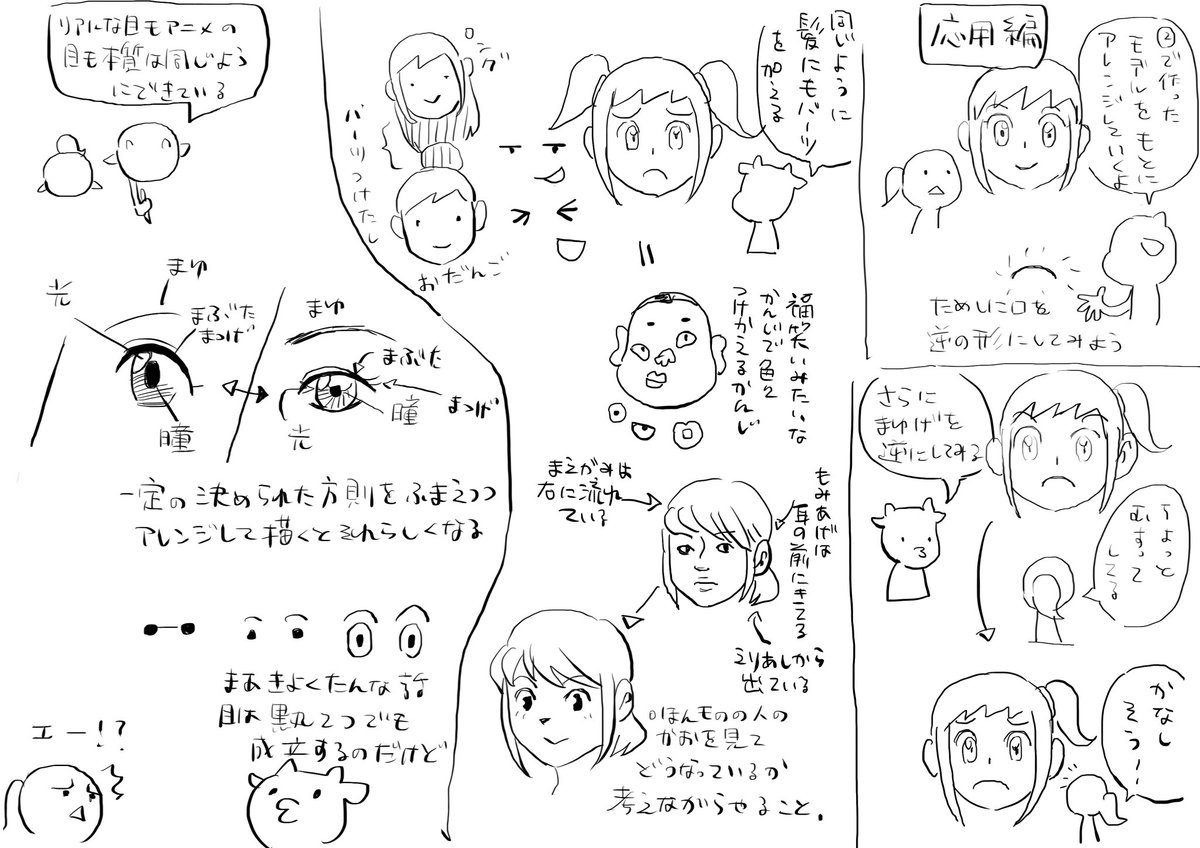 応用編
②で作った
モデルをもとに
アレンジしていくよ
ためしに口を
逆の形にしてみよう
さらに
まゆげを
逆にしてみる
ちょっと
むすって
してる
かなし
そう〜
同じように
髪にもパーツ
を加える
ロング
パーツつけたし
おだんご
福笑いみたいな
かんじで色々
つけかえるかんじ
まえがみは
右に流れ
ている
もみあげは
耳の前にきてる
えりあしから
出ている
ほんものの人の
かおを見て
どうなっているか
考えながらやること。
リアルな目もアニメの
目も本質は同じよう
にできている
光
まゆ
まぶた
まつげ
瞳
まゆ
まぶた
まつげ
瞳
光
一定の決められた方則をふまえつつ
アレンジして描くとそれらしくなる
まあきょくたんな話
目は黒丸2つでも
成立するのだけど
エー!?